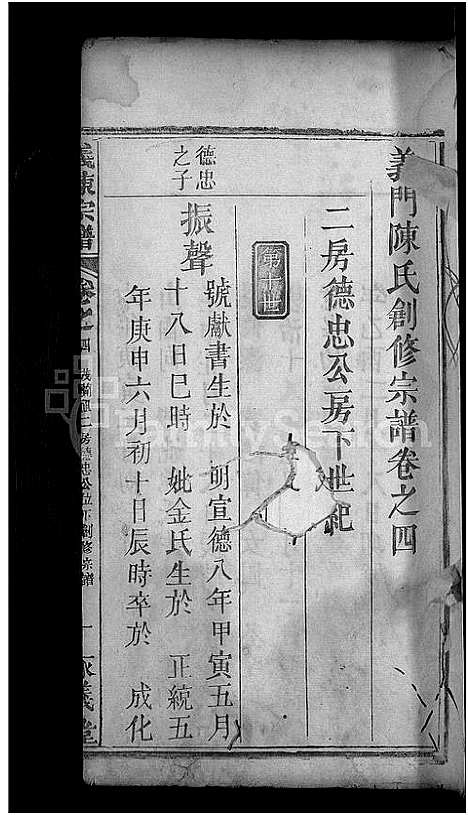 義門陳氏創修宗譜卷之四
二房德忠公房下世紀
第十世
德忠之子
振聲
號獻書生於 明宣德八年甲寅五月
十八日巳時 妣金氏生於 正統五
年庚申六月初十日辰時卒於 成化
義陳宗譜 卷之四 二房德忠公位下創修宗譜 義堂
FamilySearch